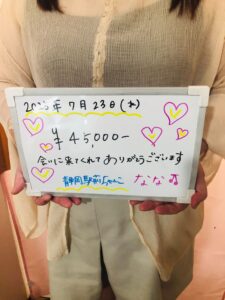 2025年7月23日(水)
¥45,000-
会いに来てくれてありがとうございます
静岡駅前ちゃんこ
なな♫